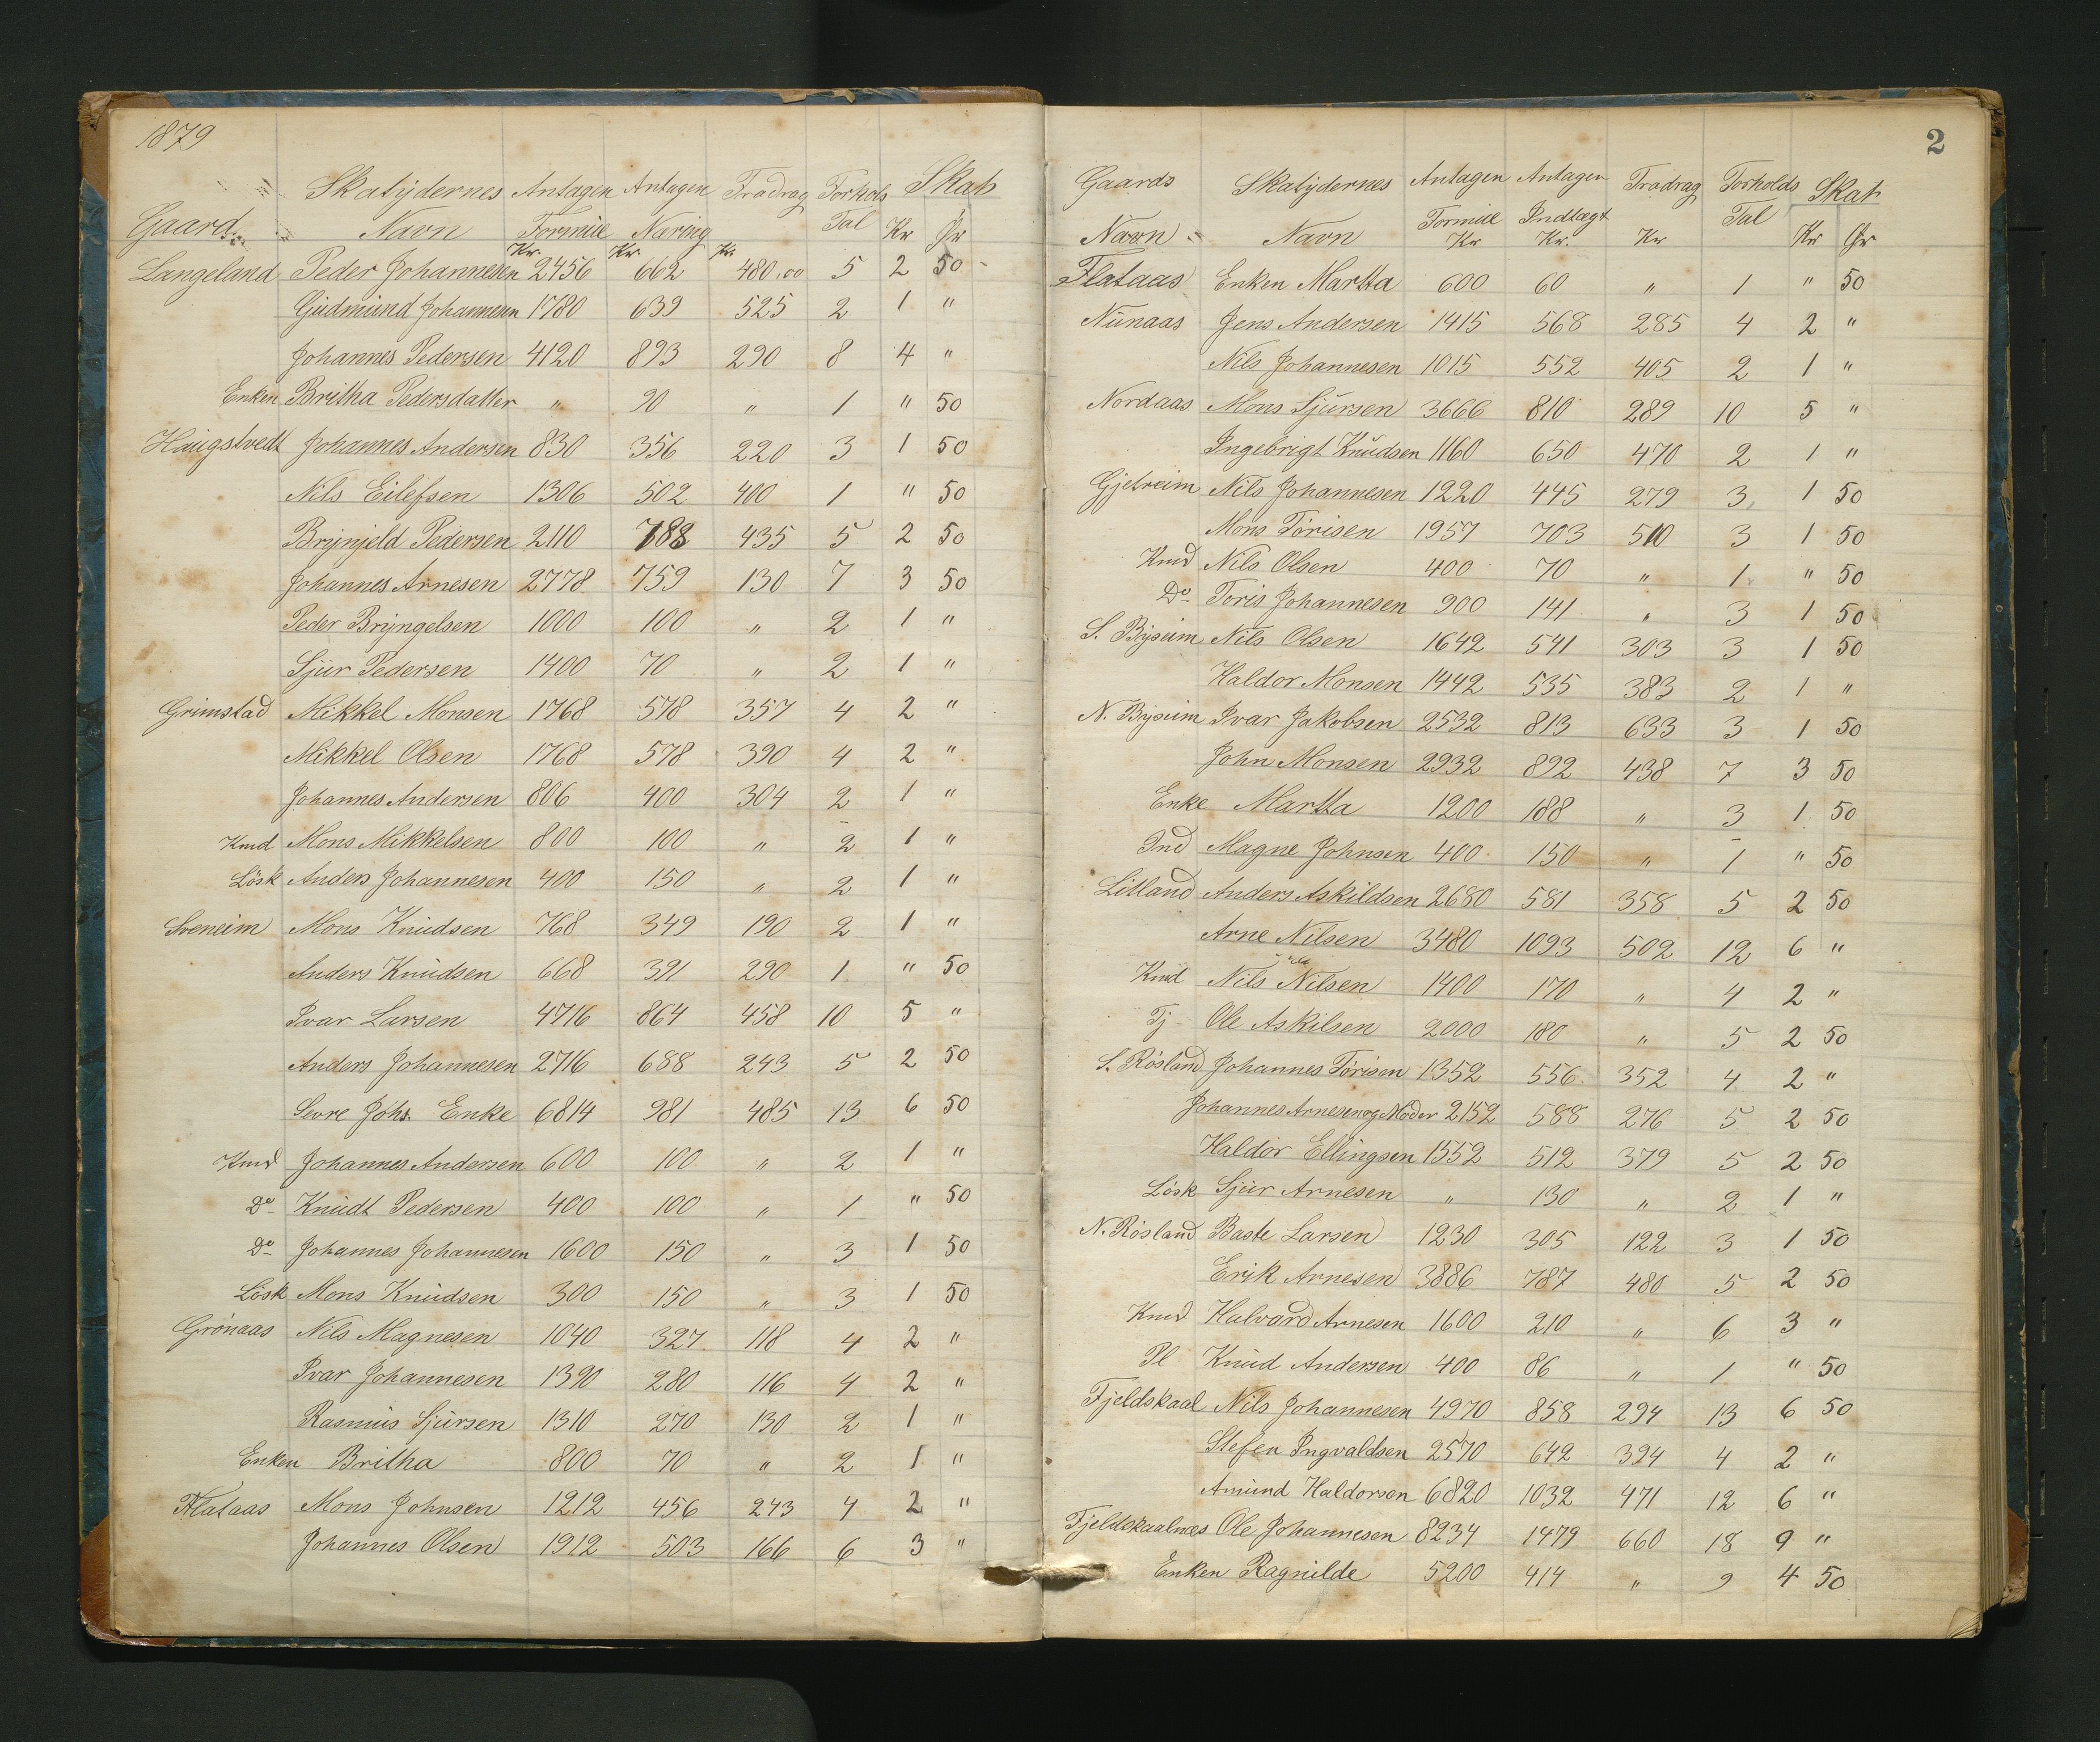 1879
Skatydernes Antagen Antagen Fradrag Forhols Skat
Gaard Navn Formue Næring Tal Kr Ør
Kr. Kr. Kr.
Langeland Peder Johannesen 2456 662 480.00 5 2 50
Gudmund Johannesen 1780 639 525 2 1 "
Johannes Pedersen 4120 893 290 8 4 "
Enken Britha Pedersdatter " 20 " 1 " 50
Haugstvedt Johannes Andersen 830 356 220 3 1 50
Nils Eilefsen 1306 502 400 1 " 50
Brynjeld Pedersen 2110 788 435 5 2 50
Johannes Arnesen 2778 759 130 7 3 50
Peder Bryngelsen 1000 100 " 2 1 "
Sjur Pedersen 1400 70 " 2 1 "
Grimstad Mikkel Monsen 1768 578 357 4 2 "
Mikkel Olsen 1768 578 390 4 2 "
Johannes Andersen 806 400 304 2 1 "
Kmd Mons Mikkelsen 800 100 " 2 1 "
Lösk Anders Johannesen 400 150 " 2 1 "
Sveneim Mons Knudsen 768 349 190 2 1 "
Anders Knudsen 668 391 290 1 " 50
Ivar Larsen 4716 864 458 10 5 "
Anders Johannesen 2716 688 243 5 2 50
Sevre Johs. Enke 6814 981 485 13 6 50
Kmd Johannes Andersen 600 100 " 2 1 "
Do Knudt Pedersen 400 100 " 1 " 50
Do Johannes Johannesen 1600 150 " 3 1 50
Lösk Mons Knudsen 300 150 " 3 1 50
Grönaas Nils Magnesen 1040 327 118 4 2 "
Ivar Johannesen 1390 280 116 4 2 "
Rasmus Sjursen 1310 270 130 2 1 "
Enken Britha 800 70 " 2 1 "
Flataas Mons Johnsen 1212 456 243 4 2 "
Johannes Olsen 1912 503 166 6 3 "
2
Gaards Skatydernes Antagen Antagen Fradrag Forholds Skat
Navn Navn Formue Indtægt Kr Tal Kr Ør
Kr Kr.
Flataas Enken Martha 600 60 " 1 " 50
Nunaas Jens Andersen 1415 568 285 4 2 "
Nils Johannesen 1015 552 405 2 1 "
Nordaas Mons Sjursen 3666 810 289 10 5 "
Ingebrigt Knudsen 1160 650 470 2 1 "
Gjetreim Nils Johannesen 1220 445 279 3 1 50
Mons Torisen 1957 703 510 3 1 50
Kmd Nils Olsen 400 70 " 1 " 50
Do Toris Johannesen 900 141 " 3 1 50
S. Byseim Nils Olsen 1642 541 303 3 1 50
Haldor Monsen 1442 535 383 2 1 "
N. Byseim Ivar Jakobsen 2532 813 633 3 1 50
John Monsen 2932 892 438 7 3 50
Enke Martha 1200 188 " 3 1 50
Ind Magne Johnsen 400 150 " 1 " 50
Litland Anders Askildsen 2680 581 358 5 2 50
Arne Nilsen 3480 1093 502 12 6 "
Kmd Nils Nilsen 1400 170 " 4 2 "
Tj Ole Askilsen 2000 180 " 5 2 50
S. Rösland Johannes Torisen 1352 556 352 4 2 "
Johannes Arnesen og Moder 2152 588 276 5 2 50
Haldor Ellingsen 1552 512 379 5 2 50
Lösk Sjur Arnesen " 130 " 2 1 "
N. Rösland Baste Larsen 1230 305 122 3 1 50
Erik Arnesen 3886 787 480 5 2 50
Kmd Halvard Arnesen 1600 210 " 6 3 "
Pl Knud Andersen 400 86 " 1 " 50
Fjeldskaal Nils Johannesen 4970 858 294 13 6 50
Stefen Ingvaldsen 2570 642 394 4 2 "
Amund Haldorsen 6820 1032 471 12 6 "
Fjeldskaalnes Ole Johannesen 8234 1479 660 18 9 "
Enken Ragnilde 5200 414 " 9 4 50